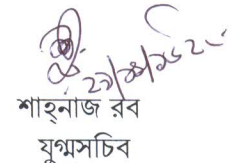 শাহ্‌নাজ রব
যুগ্মসচিব